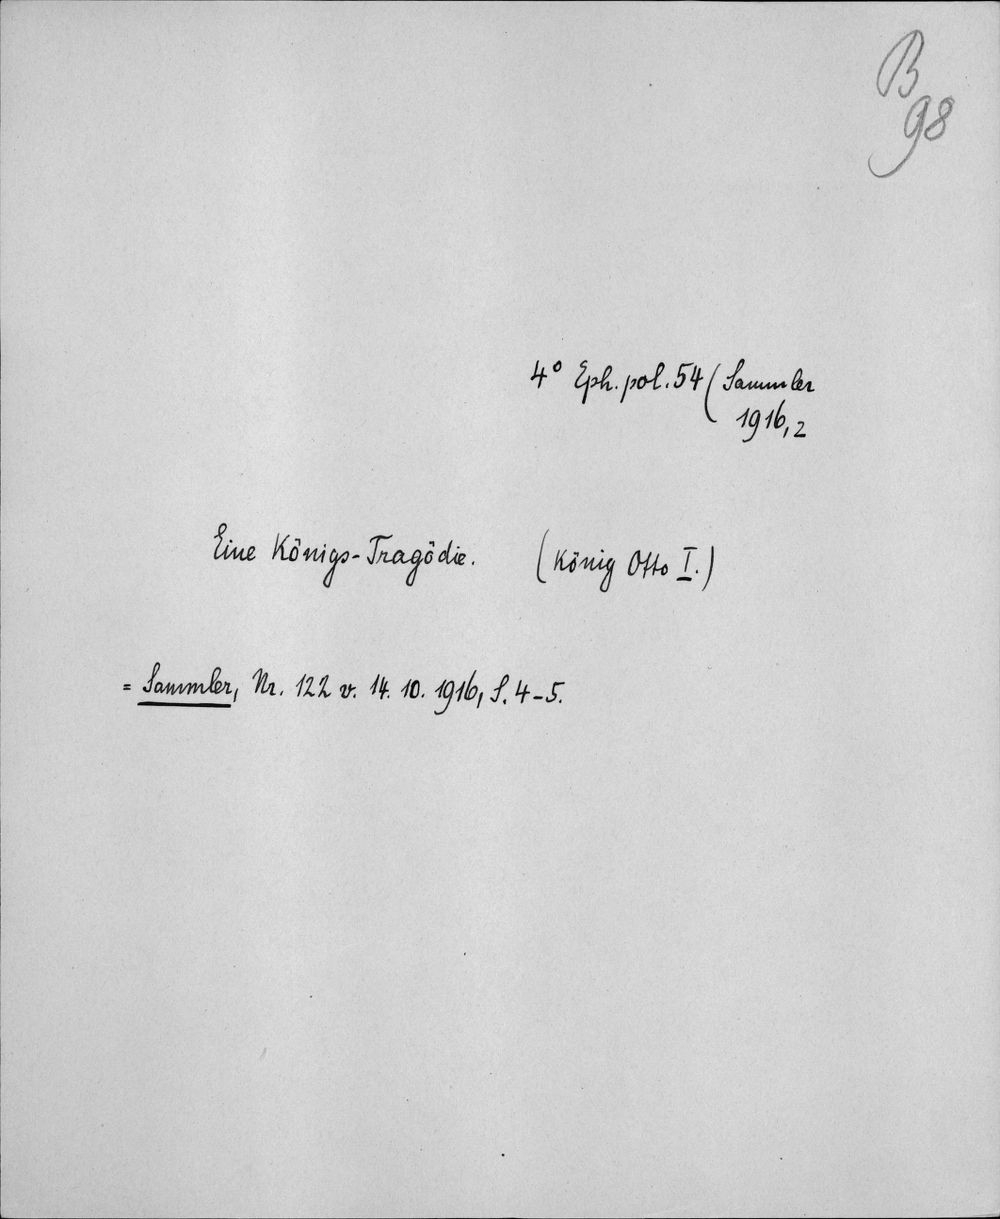 B
98
4° Eph. pol. 54 (Sammler
1916,2
Eine Königs-Tragödie. (König Otto I.)
= Sammler, Nr. 122 v. 14. 10. 1916, S. 4-5.